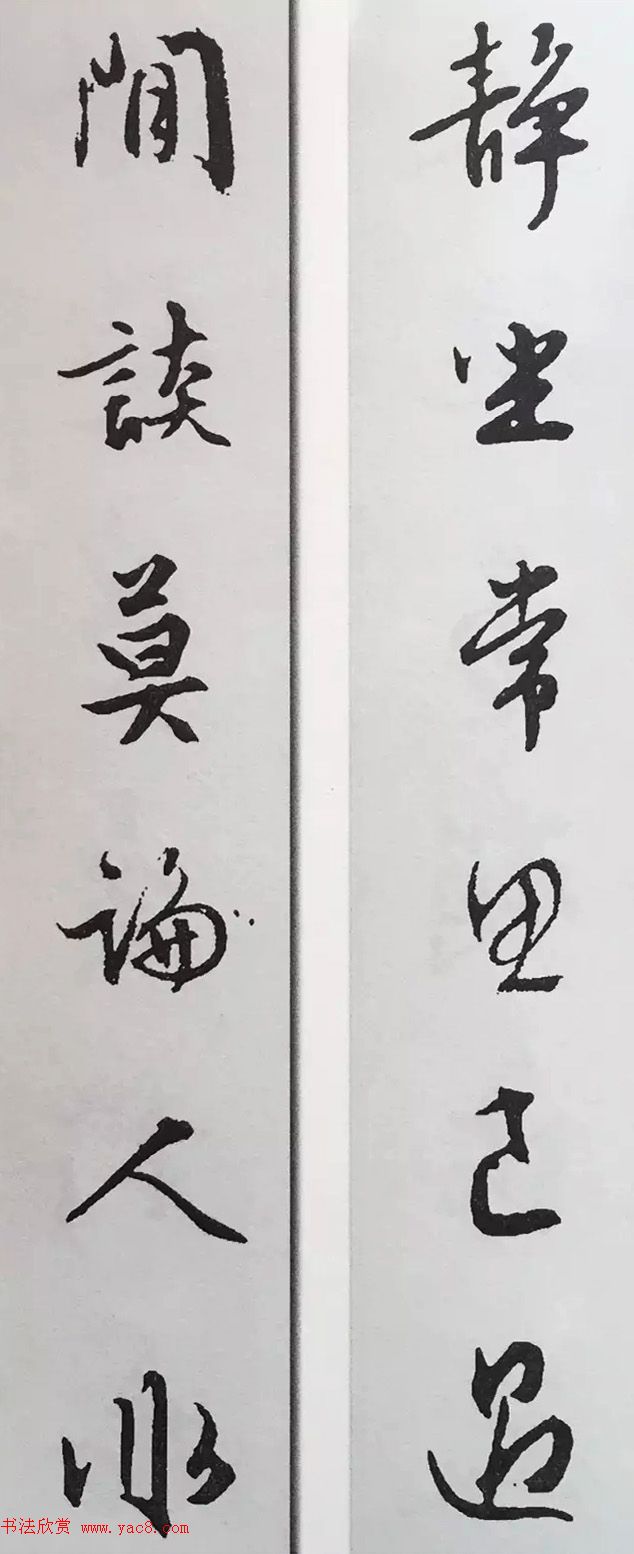 静坐常思己過
閒談莫論人非
书法欣赏 www.yac8.com